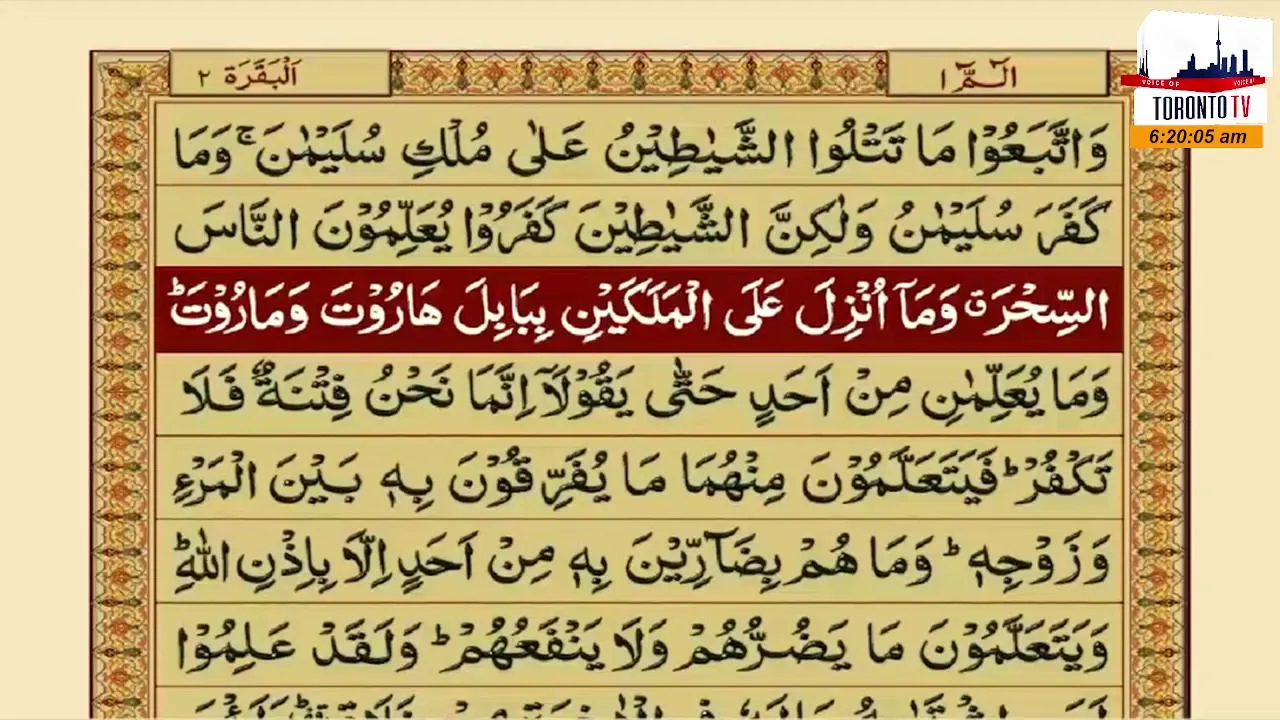 الٓمّٓ ١
اَلْبَقَرَة ٢
VOICE OF
TORONTO TV
6:20:05 am
وَاتَّبَعُوْا مَا تَتْلُوا الشَّيٰطِيْنُ عَلٰى مُلْكِ سُلَيْمٰنَ ۚ وَمَا
كَفَرَ سُلَيْمٰنُ وَلٰكِنَّ الشَّيٰطِيْنَ كَفَرُوْا يُعَلِّمُوْنَ النَّاسَ
السِّحْرَ ۗ وَمَآ اُنْزِلَ عَلَى الْمَلَكَيْنِ بِبَابِلَ هَارُوْتَ وَمَارُوْتَ ؕ
وَمَا يُعَلِّمٰنِ مِنْ اَحَدٍ حَتّٰى يَقُوْلَآ اِنَّمَا نَحْنُ فِتْنَةٌ فَلَا
تَكْفُرْ ؕ فَيَتَعَلَّمُوْنَ مِنْهُمَا مَا يُفَرِّقُوْنَ بِهٖ بَيْنَ الْمَرْءِ
وَزَوْجِهٖ ؕ وَمَا هُمْ بِضَآرِّيْنَ بِهٖ مِنْ اَحَدٍ اِلَّا بِاِذْنِ اللّٰهِ ؕ
وَيَتَعَلَّمُوْنَ مَا يَضُرُّهُمْ وَلَا يَنْفَعُهُمْ ؕ وَلَقَدْ عَلِمُوْا